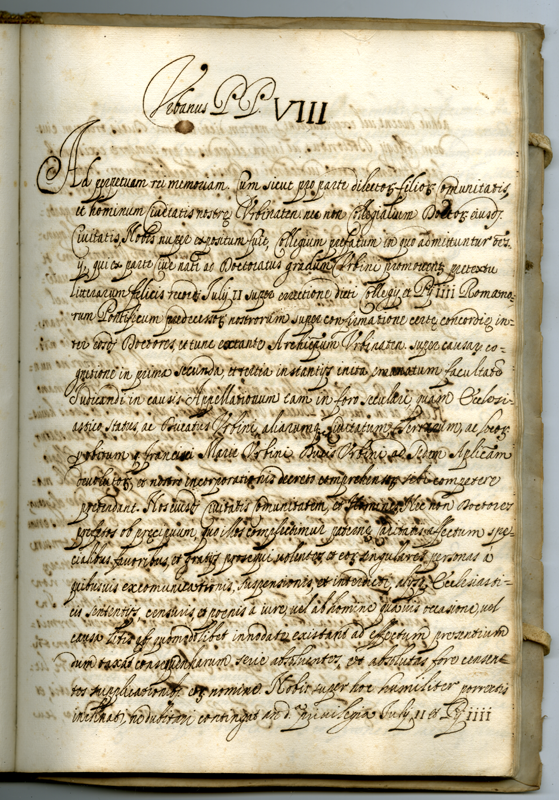 Urbanus PP. VIII
Ad perpetuam rei memoriam. Cum sicut pro parte dilectoꝝ filioꝝ Comunitatis,
et hominum Civitatis nostrę Urbinaten nec non Collegialium Doctoꝝ eiusdꝫ
Civitatis, Nobis nuper expositum fuit, Collegium prefatum in quo admittuntur
ij, qui ex parte sint nati ac Doctoratus gradum Urbini promoti pretextu
literarum felicis recordꝫ Julij II super erectione dicti Collegij et Pij IIII Romano-
rum Pontificum predecessoꝝ nostrorum super confirmatione certę concordię in-
ter eosdꝫ Doctores, et tunc Archiepum Urbinaten super causaꝝ co-
gnitione in prima secunda, et tertia instantijs initę emanatum facultatē
Iudicandi in causis Appellationum tam in foro seculari quam Ecclesi-
astico status ac Ducatus Urbini aliarumq Civitatum Terrarum, ac locoꝝ
obitum q. Francisci Marię Urbini Ducis Urbini ad Sedem Aplicam
devolutoꝝ, et nostro incorporationis decreto comprehensoꝝ sibi competere
pretendant. Nos eiusdꝫ Civitatis Comunitatem, et Homines Nec non Doctores
prefatos ob precipuum, quo illos complectimur paternę caritatis affectum spe-
cialibus favoribus, et gratijs prosequi volentes, et eoꝝ singulares personas a
quibusvis excomunicationis, suspensionis, et interdicti, alijsq Ecclesiasti-
cis sententijs, censuris et poenis a iure, vel ab homine quavis occasione, vel
causa latis si quomodolibet innodatę existant ad effectum presentium
dum taxat consequendarum serie absolventes, et absolutas fore censen-
tes supplicationibꝫ eoꝝ nomine Nobis super hoc humiliter porrectis
inclinati, nedubium contingat an dꝫ privilegia Julij II et Pij IIII